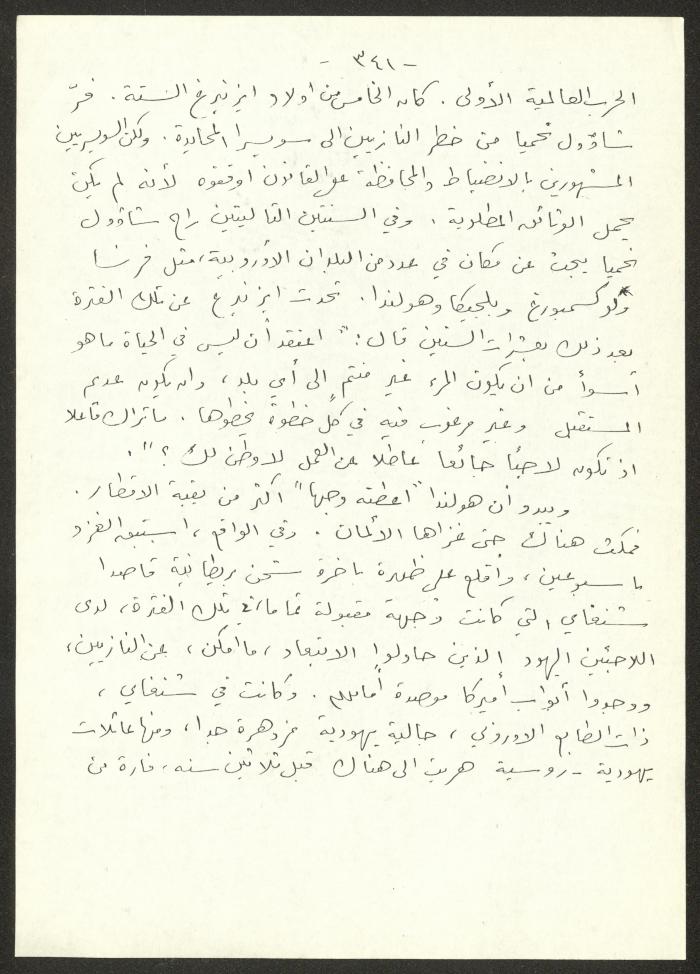 - ٣٤١ -
الحرب العالمية الأولى . كان الخامس من اولاد ايزنبرغ الستة . فرّ
شاؤول نحميا من خطر النازيين الى سويسرا المحايدة . ولكن السويسريين
المشهورين بالانضباط والمحافظة على القانون اوقفوه لأنه لم يكن
يحمل الوثائق المطلوبة . وفي السنتين التاليتين راح شاؤول
نحميا يبحث عن مكان في عدد من البلدان الأوروبية ، مثل فرنسا
ولوكسمبورغ وبلجيكا وهولندا . تحدث ايزنبرغ عن تلك الفترة
بعد ذلك بعشرات السنين قال : " اعتقد أن ليس في الحياة ما هو
أسوأ من ان يكون المرء غير منتمٍ الى أي بلد ، وان يكون عديم
المستقبل وغير مرغوب فيه في كل خطوة يخطوها . ماتراك فاعلا
اذ تكون لاجئا جائعا عاطلا عن العمل لا وطن لك ؟ " .
ويبدو أن هولندا " اعطته وجها " اكثر من بقية الاقطار .
فمكث هناك حتى غزاها الألمان . وفي الواقع ، استبق الغزو
باسبوعين ، وأقلع على ظهر باخرة شحن بريطانية قاصدا
شنغاي ، التي كانت وجهة مقبولة تماما، في تلك الفترة ، لدى
اللاجئين اليهود الذين حاولوا الابتعاد ، ما امكن ، عن النازيين ،
ووجدوا أبواب أميركا موصدة أمامهم . وكانت في شنغاي ،
ذات الطابع الاوروبي ، جالية يهودية مزدهرة جدا ، ومنها عائلات
يهودية - روسية هربت الى هناك قبل ثلاثين سنه ، فارة من